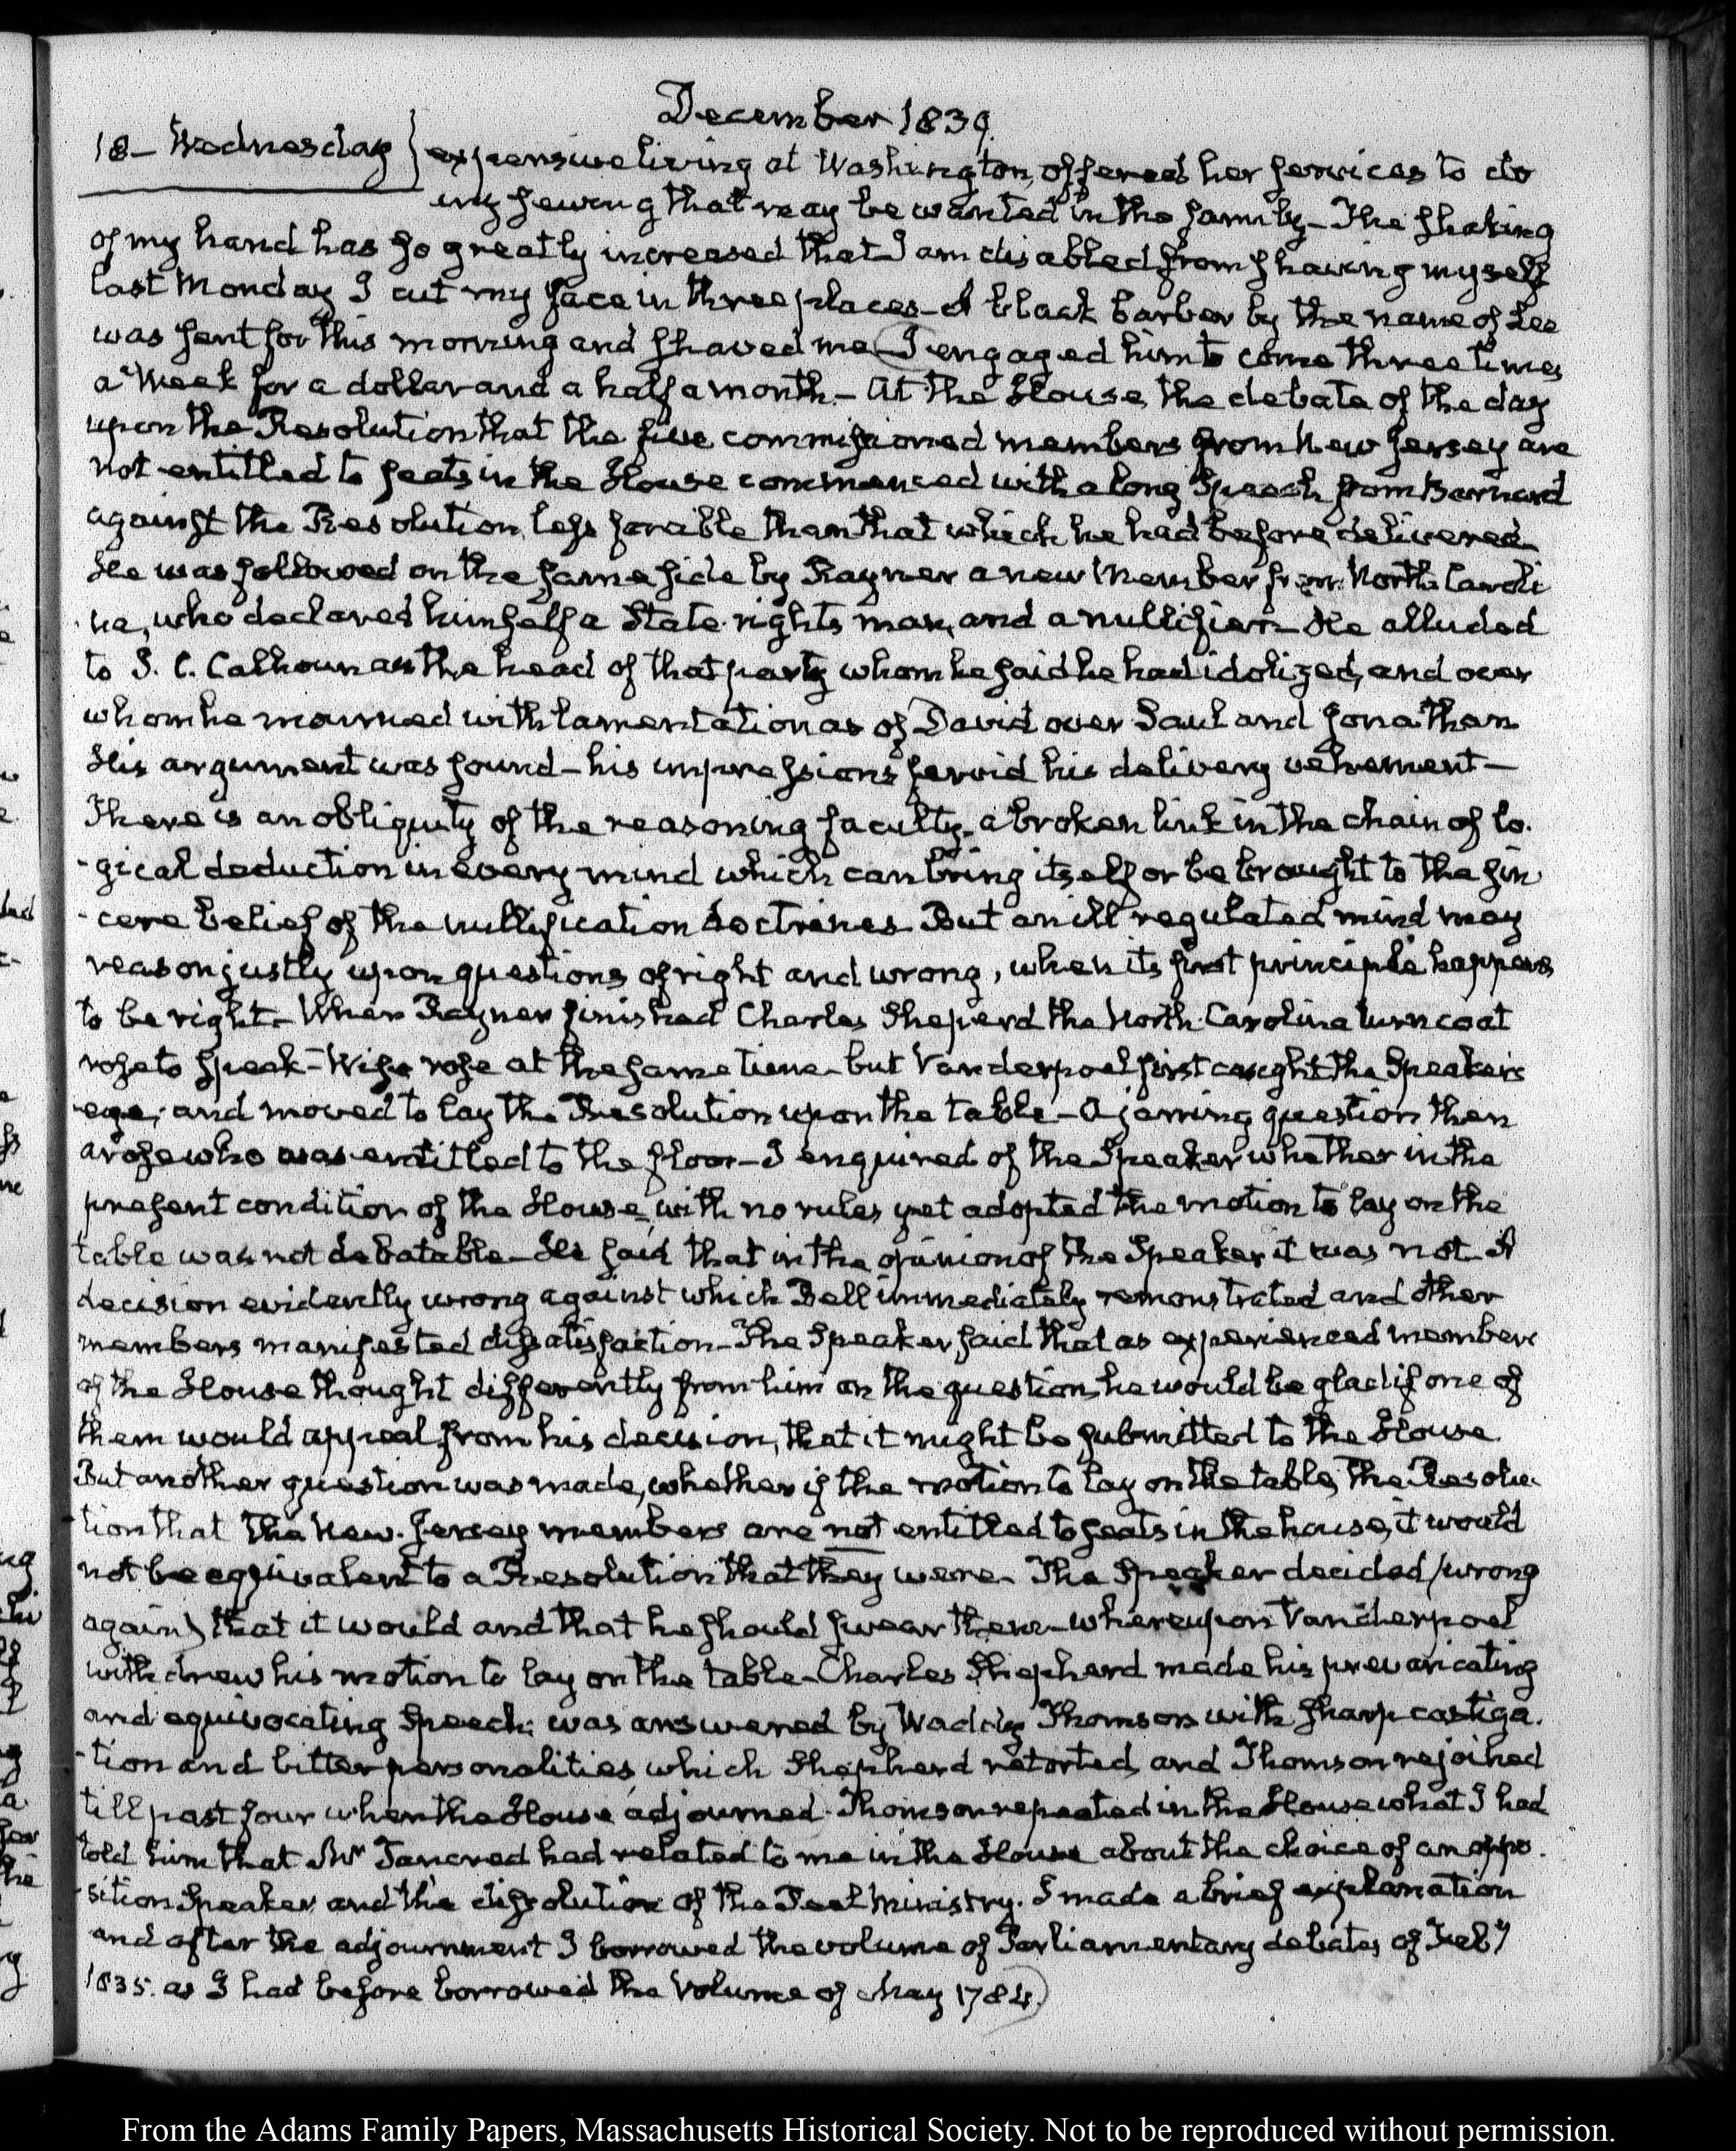 December 1839.
18 – Wednesday } expensive living at Washington, offered her services to do
any sewing that may be wanted in the family – The shaking
of my hand has so greatly increased that I am disabled from shaving myself
last Monday I cut my face in three places – A black barber by the name of Lee
was sent for this morning and shaved me (I engaged him to come three times
a Week for a dollar and a half a month. – At the House, the debate of the day
upon the Resolution that the five commissioned members from New Jersey are
not entitled to seats in the House commenced with a long Speech from Barnard
against the Resolution, less forcible than that which he had before delivered.
He was followed on the same side by Rayner a new Member from North Caroli
na, who declared himself a State-rights man, and a nullifier – He alluded
to J. C. Calhoun as the head of that party whom he said he had idolized, and over
whom he mourned with lamentation as of David over Saul and Jonathan
His argument was sound – his impressions fervid his delivery vehement –
There is an obliquity of the reasoning faculty – a broken link in the chain of lo-
-gical deduction in every mind which can bring itself or be brought to the sin
-cere belief of the nullification doctrines. But an ill regulated mind may
reason justly upon questions of right and wrong, when its first principle happens
to be right – When Rayner finished Charles Sheperd the North-Carolina turncoat
rose to speak – Wise rose at the same time – but Vanderpoel first caught the Speaker's
eye; and moved to lay the Resolution upon the table – A jarring question then
arose who was entitled to the floor – I enquired of the Speaker whether in the
present condition of the House, with no rules yet adopted the motion to lay on the
table was not debatable – He said that in the opinion of the Speaker it was not – A
decision evidently wrong against which Bell immediately remonstrated and other
members manifested dissatisfaction – The Speaker said that as experienced members
of the House thought differently from him on the question, he would be glad if one of
them would appeal from his decision, that it might be submitted to the House.
But another question was made, whether if the motion to lay on the table, the Resolu-
-tion that the New-Jersey members are not entitled to seats in the house, it would
not be equivalent to a Resolution that they were – The Speaker decided (wrong
again) that it would and that he should swear them – whereupon Vanderpoel
withdrew his motion to lay on the table – Charles Shephard made his prevaricating
and equivocating Speech: was answered by Waddy Thomson with sharp castiga-
-tion and bitter personalities, which Shepherd retorted, and Thomson rejoined
till past four when the House adjourned. Thomson repeated in the House what I had
told him that Mr Tancred had related to me in the House about the choice of an oppo-
-sition Speaker and the dissolution of the Peel Ministry. I made a brief explanation
and after the adjournment I borrowed the volume of Parliamentary debates of Feby
1835. as I had before borrowed the Volume of May 1784.)
From the Adams Family Papers, Massachusetts Historical Society. Not to be reproduced without permission.